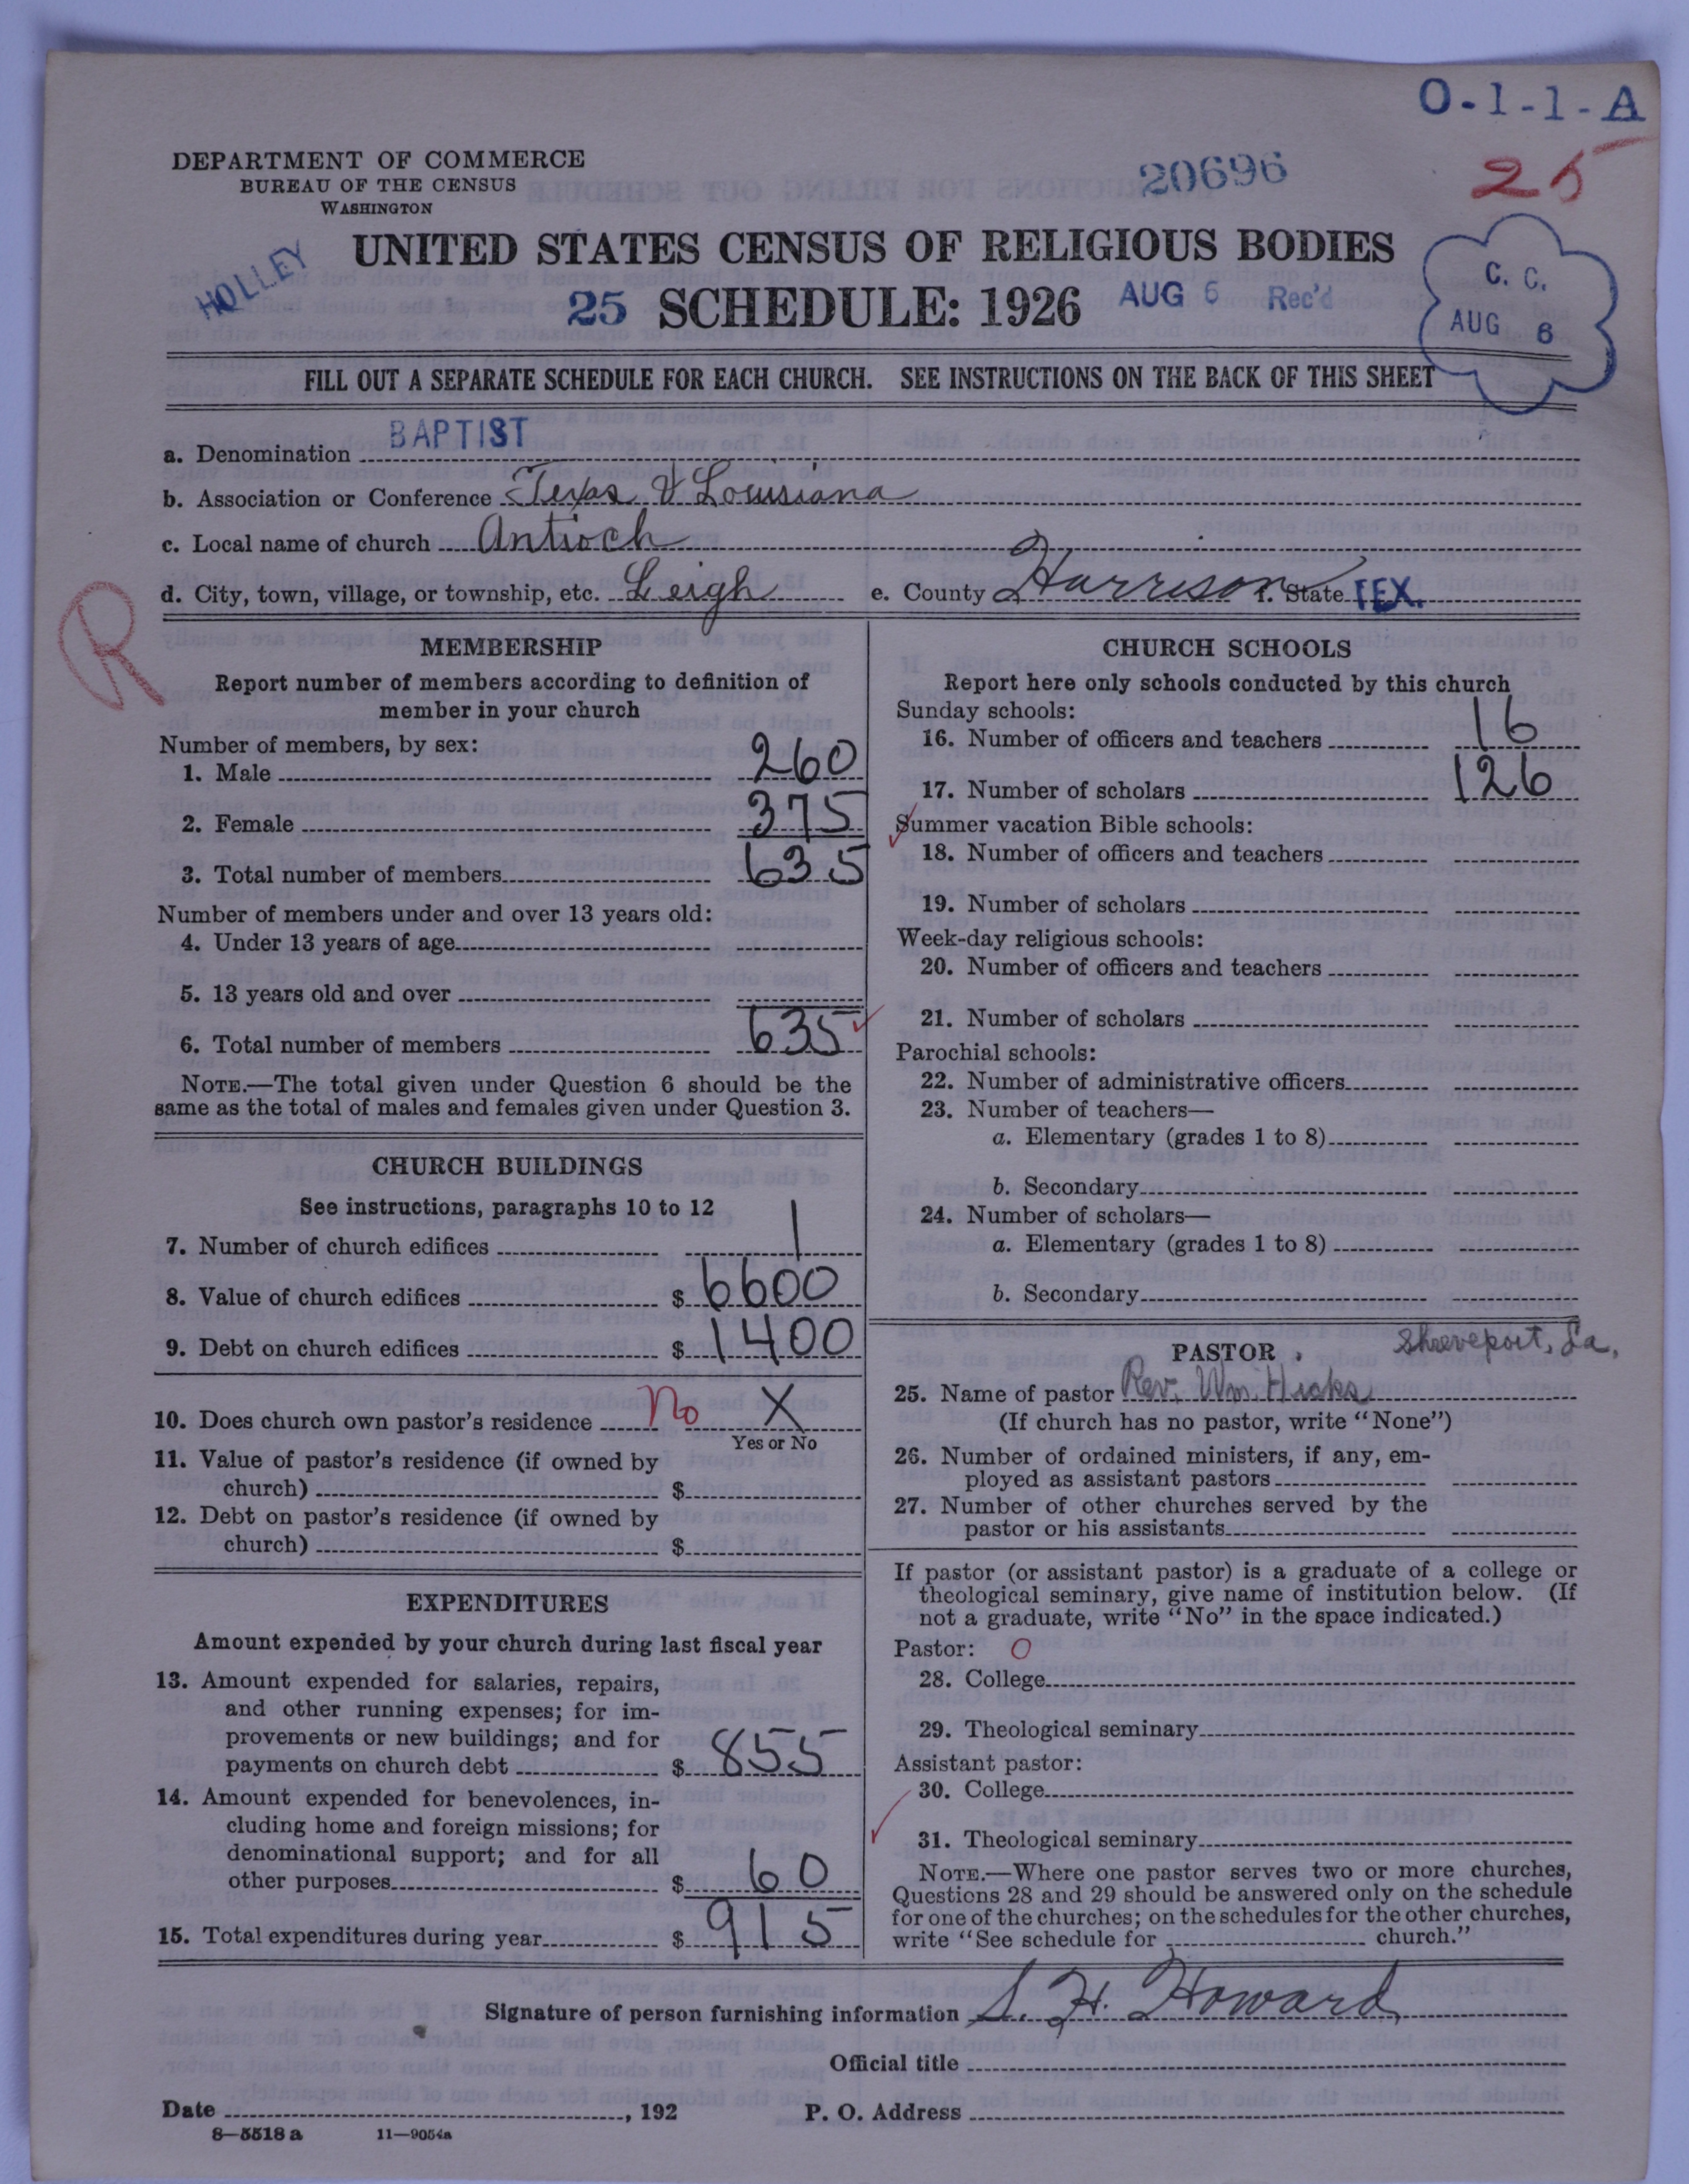 O-1-1-A
DEPARTMENT OF COMMERCE
BUREAU OF THE CENSUS
WASHINGTON
20696
25
HOLLEY
UNITED STATES CENSUS OF RELIGIOUS BODIES
25 SCHEDULE: 1926 AUG 6 Rec'd
C. C.
AUG 6
FILL OUT A SEPARATE SCHEDULE FOR EACH CHURCH. SEE INSTRUCTIONS ON THE BACK OF THIS SHEET
a. Denomination BAPTIST
b. Association or Conference Texas & Louisiana
c. Local name of church Antioch
d. City, town, village, or township, etc. Leigh e. County Harrison f. State TEX.
R
MEMBERSHIP
Report number of members according to definition of
member in your church
Number of members, by sex:
1. Male 260
2. Female 375
3. Total number of members 635
Number of members under and over 13 years old:
4. Under 13 years of age
5. 13 years old and over
6. Total number of members 635
NOTE.—The total given under Question 6 should be the
same as the total of males and females given under Question 3.
CHURCH BUILDINGS
See instructions, paragraphs 10 to 12
7. Number of church edifices 1
8. Value of church edifices $ 6600
9. Debt on church edifices $ 1400
10. Does church own pastor's residence No X
Yes or No
11. Value of pastor's residence (if owned by
church) $
12. Debt on pastor's residence (if owned by
church) $
EXPENDITURES
Amount expended by your church during last fiscal year
13. Amount expended for salaries, repairs,
and other running expenses; for im-
provements or new buildings; and for
payments on church debt $ 855
14. Amount expended for benevolences, in-
cluding home and foreign missions; for
denominational support; and for all
other purposes $ 60
15. Total expenditures during year $ 915
CHURCH SCHOOLS
Report here only schools conducted by this church
Sunday schools:
16. Number of officers and teachers 16
17. Number of scholars 126
Summer vacation Bible schools:
18. Number of officers and teachers
19. Number of scholars
Week-day religious schools:
20. Number of officers and teachers
21. Number of scholars
Parochial schools:
22. Number of administrative officers
23. Number of teachers—
a. Elementary (grades 1 to 8)
b. Secondary
24. Number of scholars—
a. Elementary (grades 1 to 8)
b. Secondary
PASTOR Shreveport, La,
25. Name of pastor Rev. Wm. Hicks
(If church has no pastor, write "None")
26. Number of ordained ministers, if any, em-
ployed as assistant pastors
27. Number of other churches served by the
pastor or his assistants
If pastor (or assistant pastor) is a graduate of a college or
theological seminary, give name of institution below. (If
not a graduate, write "No" in the space indicated.)
Pastor: O
28. College
29. Theological seminary
Assistant pastor:
30. College
31. Theological seminary
NOTE.—Where one pastor serves two or more churches,
Questions 28 and 29 should be answered only on the schedule
for one of the churches; on the schedules for the other churches,
write "See schedule for church."
Signature of person furnishing information S. H. Howard
Official title
Date , 192 P. O. Address
8—5518 a 11—9054a